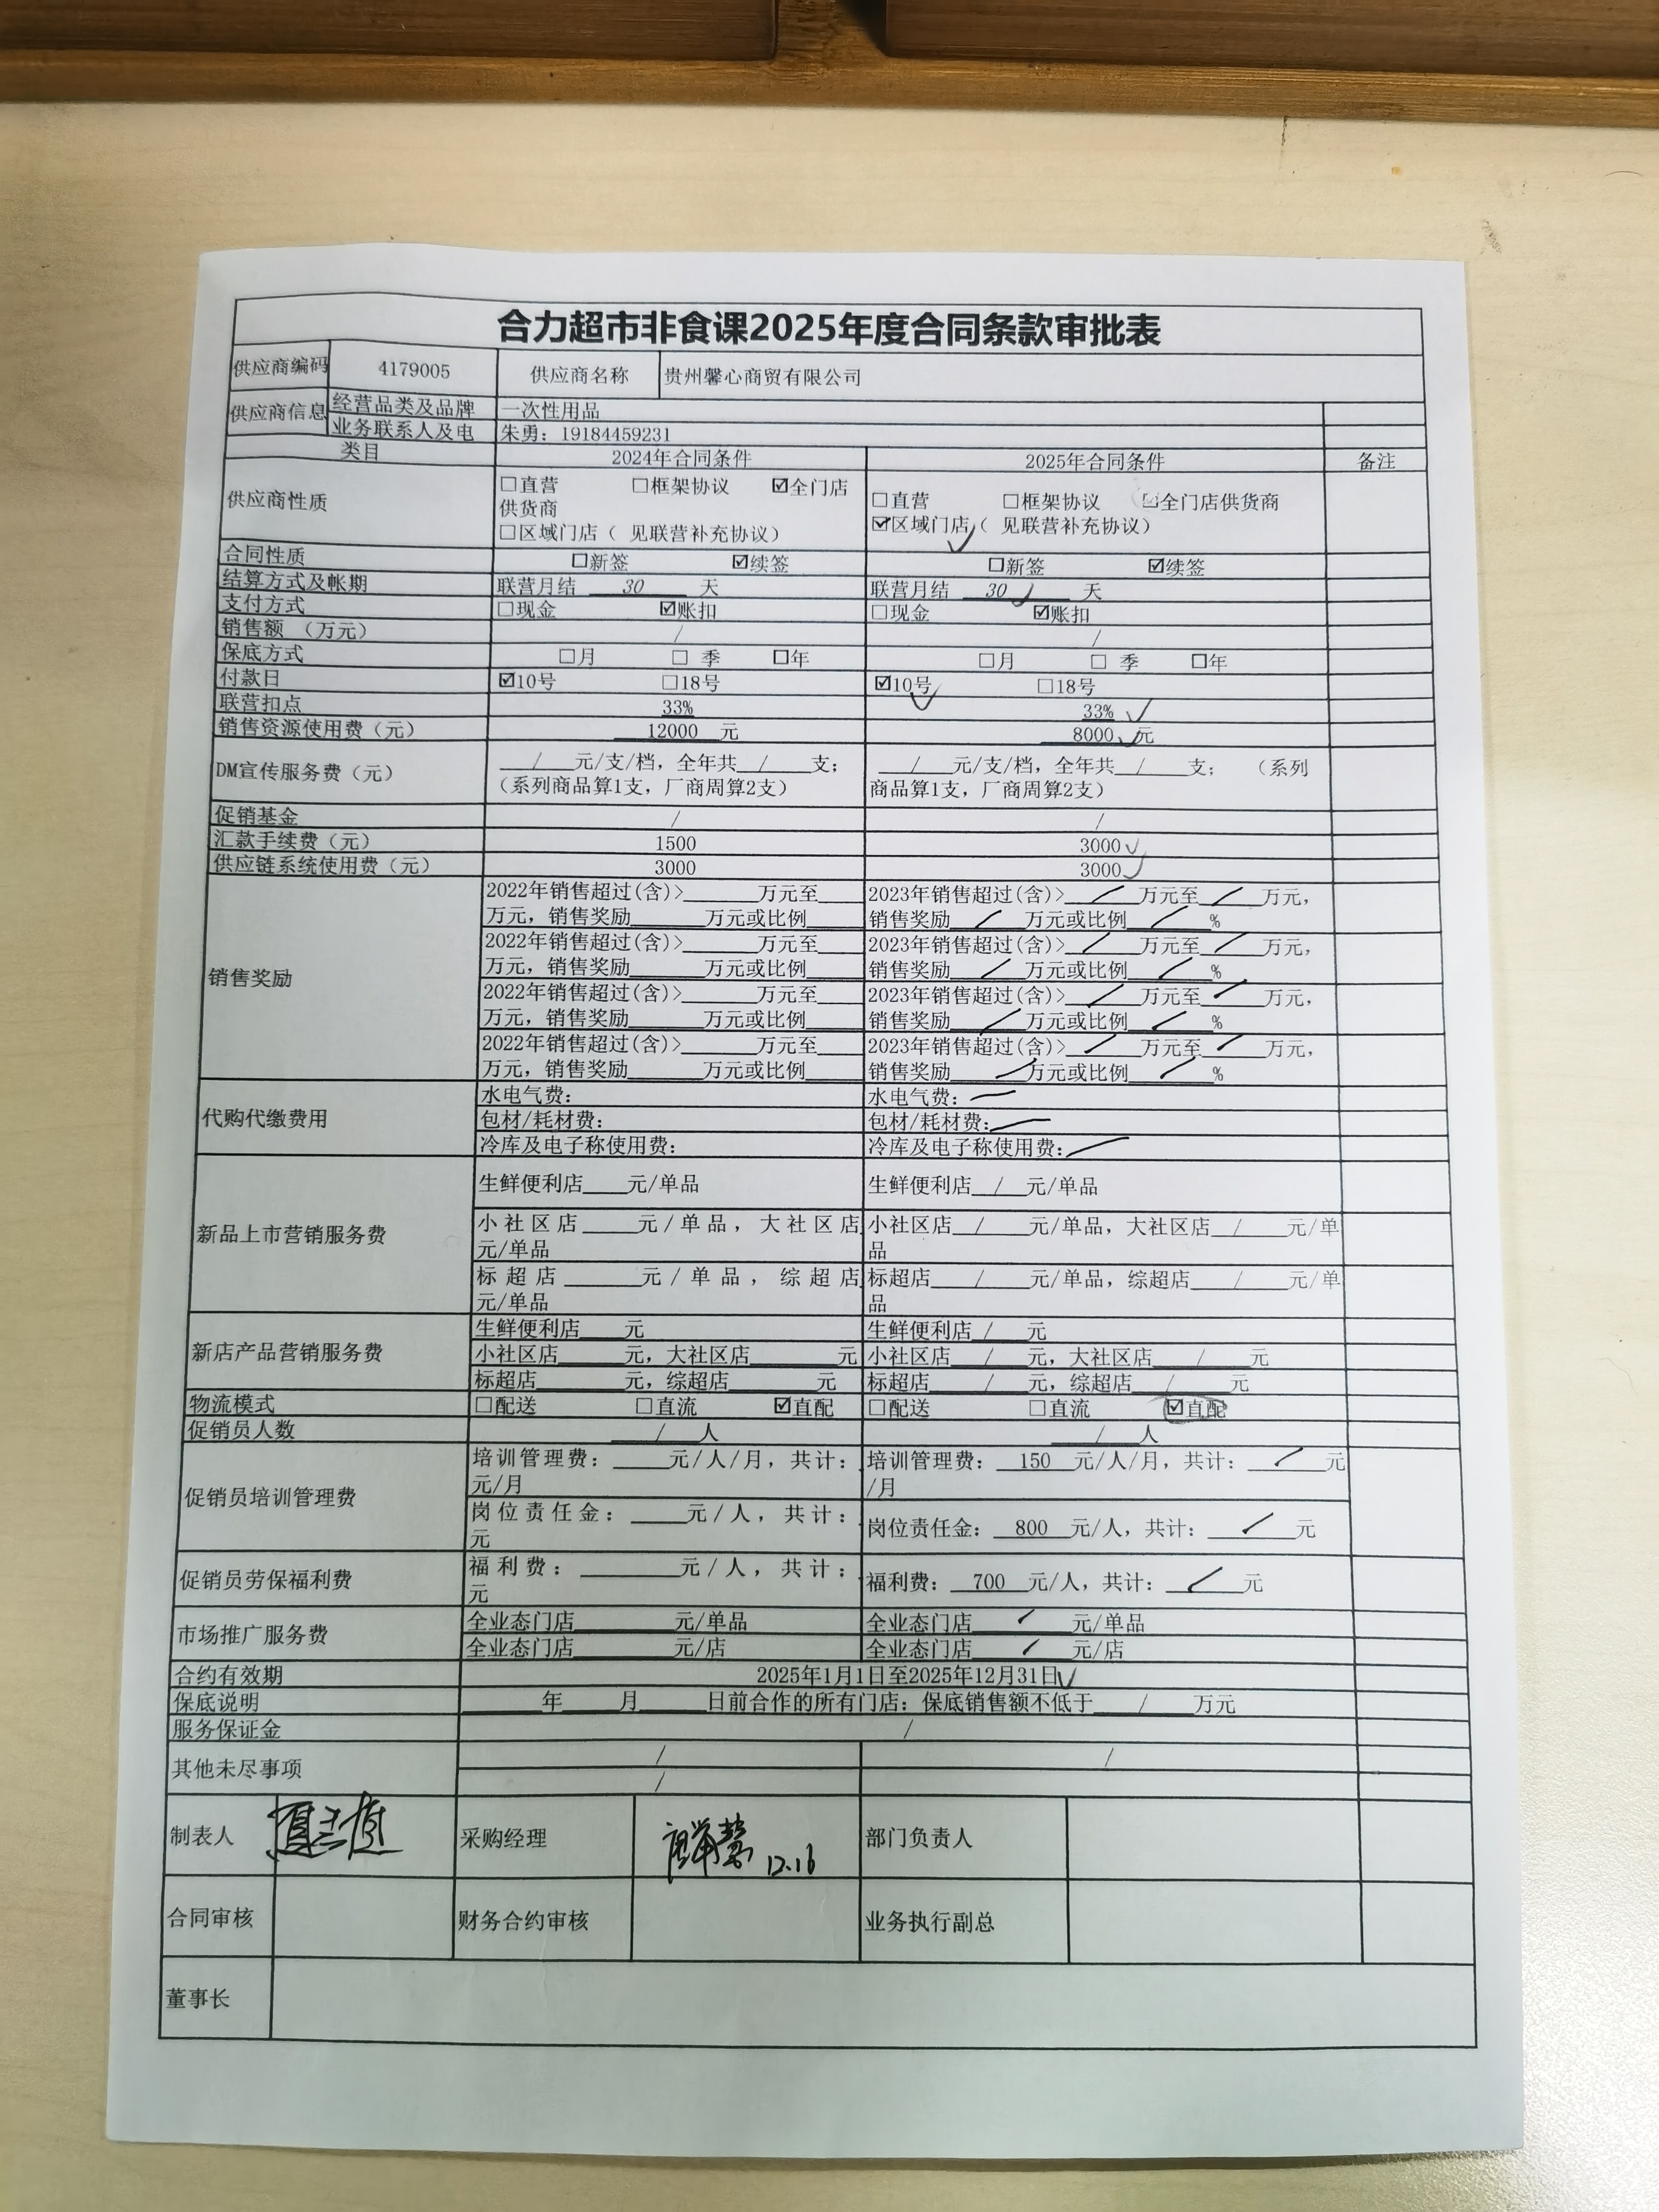 合力超市非食课2025年度合同条款审批表
供应商编码 4179005 供应商名称 贵州馨心商贸有限公司
供应商信息 经营品类及品牌 一次性用品
业务联系人及电 朱勇：19184459231
类目 2024年合同条件 2025年合同条件 备注
供应商性质 □直营 □框架协议 ☑全门店供货商 □区域门店（ 见联营补充协议） □直营 □框架协议 全门店供货商 ☑区域门店（ 见联营补充协议）
合同性质 □新签 ☑续签 □新签 ☑续签
结算方式及帐期 联营月结 30 天 联营月结 30 天
支付方式 □现金 ☑账扣 □现金 ☑账扣
销售额 （万元） / /
保底方式 □月 □ 季 □年 □月 □ 季 □年
付款日 ☑10号 □18号 ☑10号 □18号
联营扣点 33% 33%
销售资源使用费（元） 12000 元 8000 元
DM宣传服务费（元） / 元/支/档，全年共 / 支；（系列商品算1支，厂商周算2支） / 元/支/档，全年共 / 支； （系列商品算1支，厂商周算2支）
促销基金 / /
汇款手续费（元） 1500 3000
供应链系统使用费（元） 3000 3000
销售奖励
2022年销售超过(含)>______万元至___ 2023年销售超过(含)> / 万元至 / 万元，
万元，销售奖励______万元或比例____ 销售奖励 / 万元或比例 / %
2022年销售超过(含)>______万元至___ 2023年销售超过(含)> / 万元至 / 万元，
万元，销售奖励______万元或比例____ 销售奖励 / 万元或比例 / %
2022年销售超过(含)>______万元至___ 2023年销售超过(含)> / 万元至 / 万元，
万元，销售奖励______万元或比例____ 销售奖励 / 万元或比例 / %
2022年销售超过(含)>______万元至___ 2023年销售超过(含)> / 万元至 / 万元，
万元，销售奖励______万元或比例____ 销售奖励 / 万元或比例 / %
代购代缴费用
水电气费： 水电气费：
包材/耗材费： 包材/耗材费：
冷库及电子称使用费： 冷库及电子称使用费：
新品上市营销服务费
生鲜便利店____元/单品 生鲜便利店 / 元/单品
小社区店____元/单品，大社区店 小社区店 / 元/单品，大社区店 / 元/单
元/单品 品
标超店______元/单品，综超店 标超店 / 元/单品，综超店 / 元/单
元/单品 品
新店产品营销服务费
生鲜便利店____元 生鲜便利店 / 元
小社区店_____元，大社区店______元 小社区店 / 元，大社区店 / 元
标超店______元，综超店______元 标超店 / 元，综超店 / 元
物流模式 □配送 □直流 ☑直配 □配送 □直流 ☑直配
促销员人数 / 人 / 人
促销员培训管理费
培训管理费：____元/人/月，共计： 培训管理费： 150 元/人/月，共计： / 元
元/月 /月
岗位责任金：____元/人，共计： 岗位责任金： 800 元/人，共计： / 元
元
促销员劳保福利费 福利费：______元/人，共计： 福利费： 700 元/人，共计： / 元
元
市场推广服务费
全业态门店________元/单品 全业态门店 / 元/单品
全业态门店________元/店 全业态门店 / 元/店
合约有效期 2025年1月1日至2025年12月31日
保底说明 ______年____月_____日前合作的所有门店：保底销售额不低于 / 万元
服务保证金 /
其他未尽事项 / /
/
制表人 采购经理 12.16 部门负责人
合同审核 财务合约审核 业务执行副总
董事长